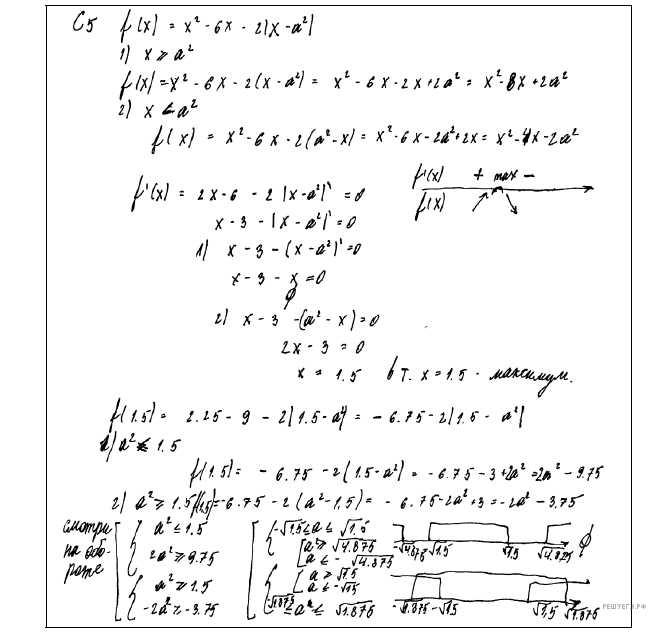 C5 f(x) = x² - 6x - 2|x - a²|
1) x ⩾ a²
f(x) = x² - 6x - 2(x - a²) = x² - 6x - 2x + 2a² = x² - 8x + 2a²
2) x < a²
f(x) = x² - 6x - 2(a² - x) = x² - 6x - 2a² + 2x = x² - 4x - 2a²
f'(x) + max -
f(x) ↗ ↘
f'(x) = 2x - 6 - 2|x - a²|' = 0
x - 3 - |x - a²|' = 0
1) x - 3 - (x - a²)' = 0
x - 3 - x = 0
∅
2) x - 3 - (a² - x) = 0
2x - 3 = 0
x = 1.5 в т. x = 1.5 - максимум.
f(1.5) = 2.25 - 9 - 2|1.5 - a²| = -6.75 - 2|1.5 - a²|
1) a² ⩽ 1.5
f(1.5) = -6.75 - 2(1.5 - a²) = -6.75 - 3 + 2a² = 2a² - 9.75
2) a² ⩾ 1.5 f(1,5) = -6.75 - 2(a² - 1,5) = -6.75 - 2a² + 3 = -2a² - 3.75
смотри на обороте
a² ⩽ 1.5
2a² ⩾ 9.75
a² ⩾ 1.5
-2a² ⩾ -3.75
-√1,5 ⩽ a ⩽ √1,5
a ⩾ √4.875
a ⩽ -√4.875
a ⩾ √1,5
a ⩽ -√1,5
-√1.875 ⩽ a ⩽ √1.875
-√4.875 -√1,5 √1,5 √4.875 ∅
-√1.875 -√1,5 √1,5 √1.875
РЕШУЕГЭ.РФ